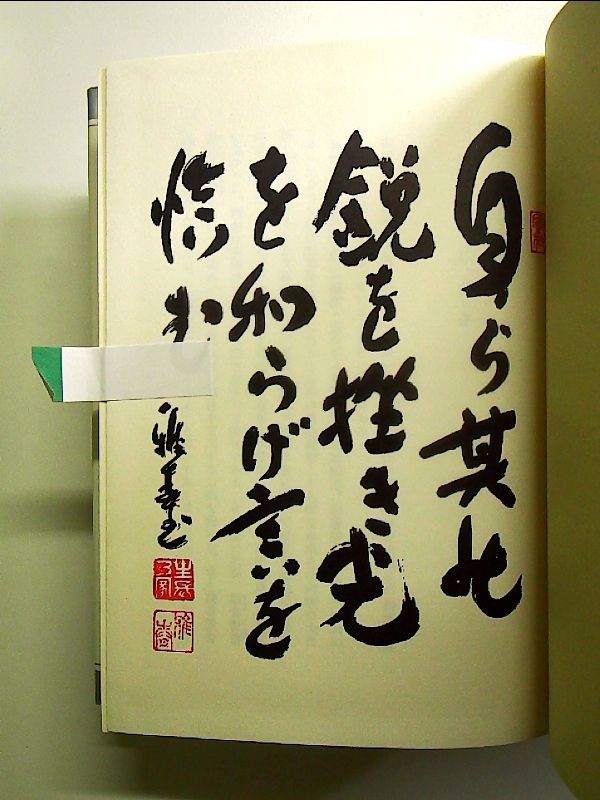 自ら其の
鋭を挫き光
を和らげ言を
慎む